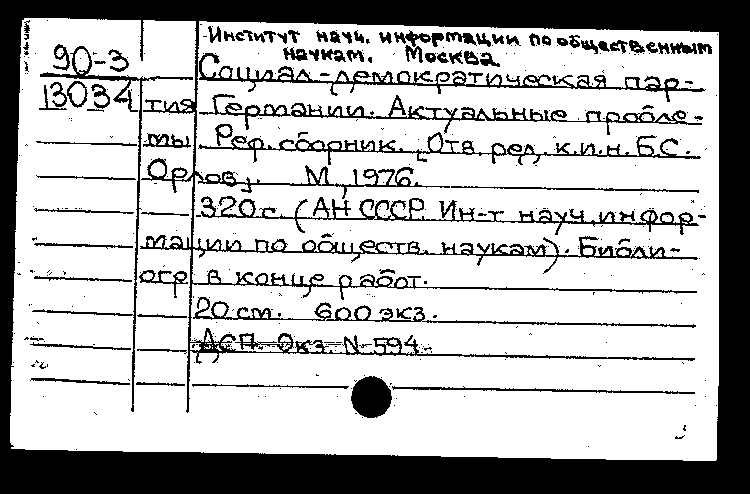 Институт науч. информации по общественным
наукам. Москва.
90-3
13034
Социал-демократическая пар-
тия Германии. Актуальные пробле-
мы. Реф. сборник. [Отв. ред. к.и.н. Б.С.
Орлов]. М., 1976.
320 с. (АН СССР. Ин-т науч. инфор-
мации по обществ. наукам). Библи-
огр. в конце работ.
20 см. 600 экз.
ДСП. Экз. N 594.